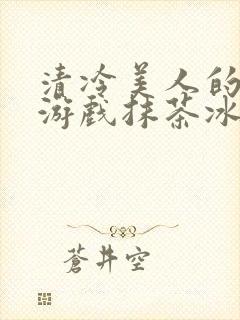 清冷美人的
游戏抹茶冰
蒼井空